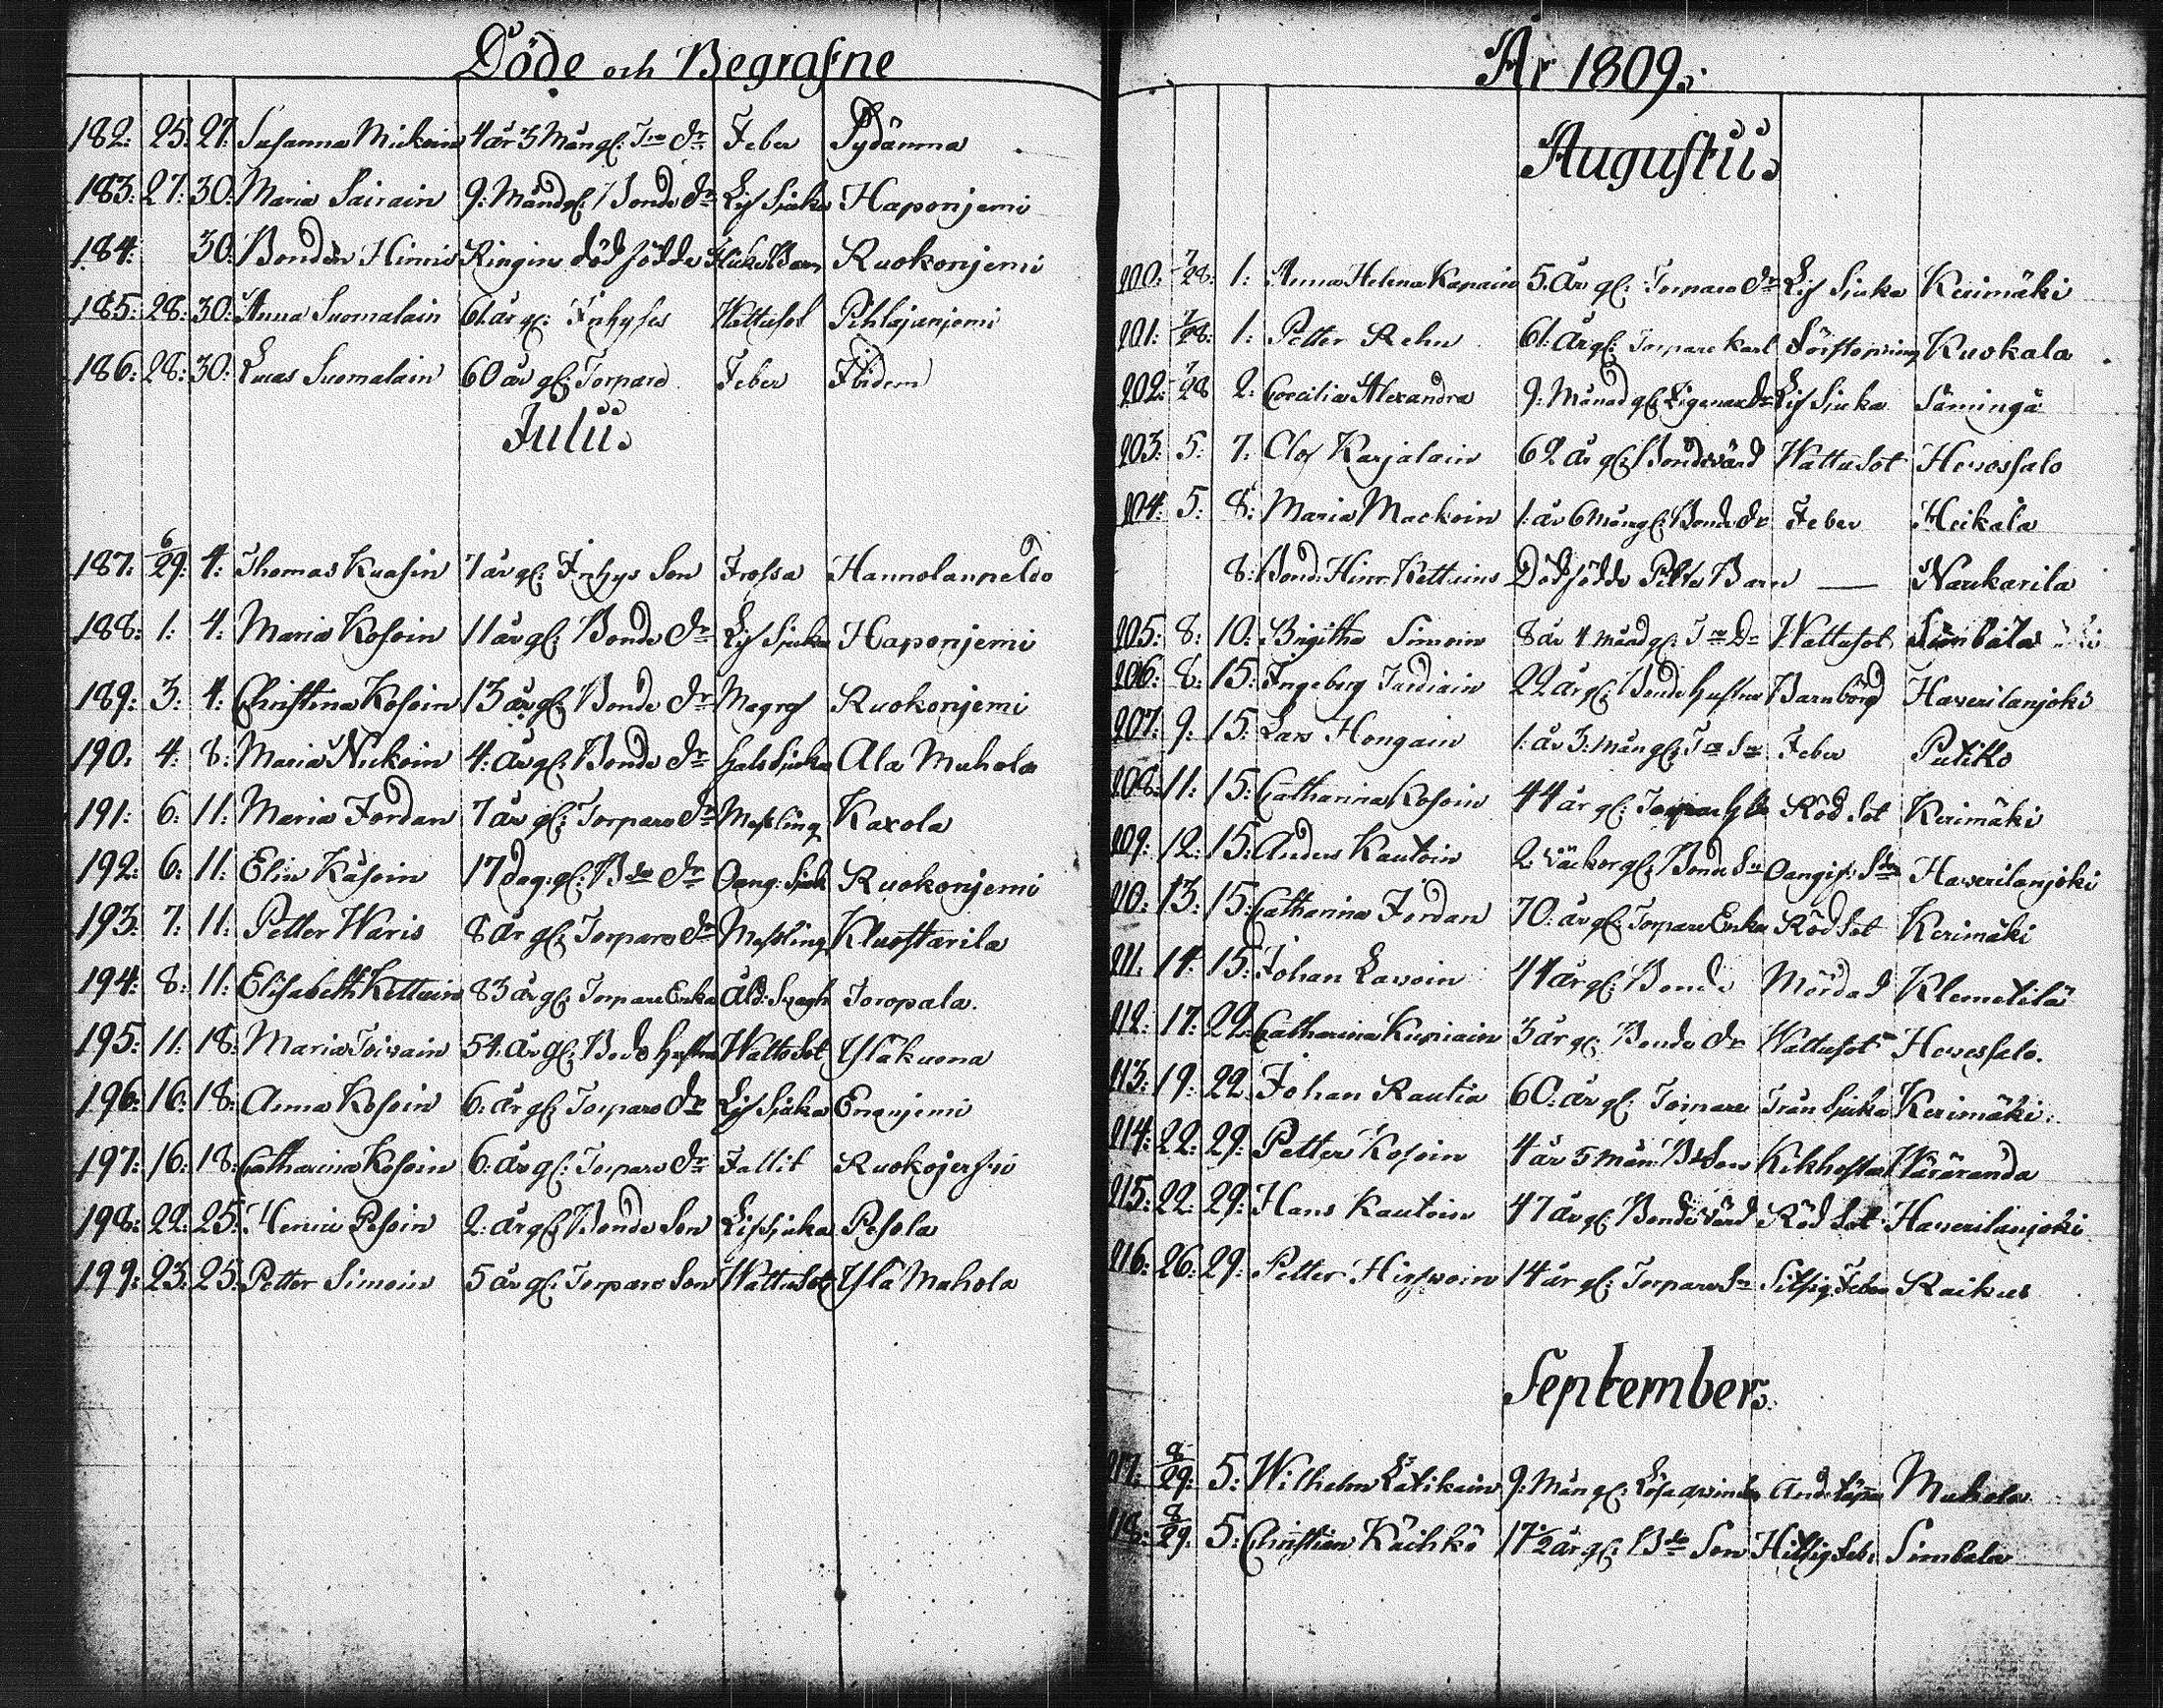 Döde och Begrafne
182: 25: 27: Susanna Mickoin 4 år 3 Mån gl: Tre dr Feber Pydänma
183: 27: 30: Maria Sairain 9: Månd gl: Bonde dr Lif Sjuka Haponjemi
184: 30: Bonden Himis Ringins död födde Ruokonjemi
185: 28: 30: Anna Suomalain 61 år gl: Inhyses Wattusot Pihlajanjemi
186: 28: 30: Lucas Suomalain 60 år gl: Torpare Feber Ibidem
Julii.
187: 6/29: 4: Thomas Kuasin 7 år gl: Inhys Son Frossa Hannolanpeldo
188: 1: 4: Maria Kosoin 11 år gl: Bonde dr Lif Sjuka Haponjemi
189: 3: 4: Christina Kosoin 13 år gl: Bonde dr Magref Ruokonjemi
190. 4: 8: Maria Nickoin 4: År gl: Bonde dr Hals Sjuka Ala Muhola
191: 6: 11: Maria Jordan 7 år gl: Torpare dr Messling Kaxola
192: 6: 11: Elin Käsoin 17 dag: gl: Bde dr Oang: Sjuk Ruokonjemi
193: 7: 11: Petter Waris 8 år gl: Torpare dr Messling Kluostarila
194: 8: 11: Elisabeth Kettuin 83 år gl: Torpare Enka Åld: Svagh Joropala.
195: 11: 18: Maria Toivain 54: år gl: Bode hustru Watto Sot Yläkuona
196: 16: 18: Anna Kosoin 6: år gl: Torpare dr Lif Sjuka Enanjemi
197: 16: 18: Catharina Kosoin 6: år gl: Torpare dr Fallit Ruokojerfvi
198: 22: 25: Henric Pesoin 2: år gl: Bonde Son Lifsjuka Pesola
199: 23: 25: Petter Simoin 5 år gl: Torpare Son Wattusot Ylä Mahola
År 1809.
Augustii.
200: 7/28: 1: Anna Helena Kapain 5. År gl: Torpare dr Lif Sjuka Kerimäki
201: 7/28: 1: Petter Rehn 61: År gl: Torpare karl Förstopning Kuokala
202: 7/28 2: Coecilia Alexandra 9: Månad gl: dr Lif Sjuka Sämingä
203: 5: 7: Olof Karjalain 62 år gl: Bondevärd Wattusot Hevossalo
204: 5: 8: Maria Mackoin 1: år 6 mån gl: Bonde dr Feber Heikala
8: Bond: Hinr: Kettuins Dödfödde Pilte Barn — Naukarila
205: 8: 10: Brigitha Simoin 8 år 4 månd gl: Tre Dr Wattusot Simbala
206: 8: 15: Ingeborg Tardiain 22 år gl: Bonde hustru Barnbörd Haverilanjoki
207: 9: 15: Lars Hongain 1: år 3: mån gl: Tre Sn Feber Putikko
208: 11: 15: Catharina Kosoin 44 år gl: Röd Sot Kerimäki
209: 12: 15: Anders Kautoin 2: väckor gl: Bonde Sn Oangif: Haverilanjoki
210: 13: 15: Catharina Jordan 70: år gl: Torpare Enka Röd Sot Kerimäki
211. 14: 15: Johan Lavoin 44 år gl: Bonde Mördad Klemetilä
212: 17: 22: Catharina Kupiain 3 år gl: Bonde dr Wattusot Hevossalo.
213: 19: 22 Johan Rautia 60: år gl: Torpare Trån Sjuka Kerimäki:
214: 22: 29: Petter Kosoin 4 år 5 mån: Bde Son Kikhosta
215: 22: 29: Hans Kautoin 47 år gl: Bonde värd Röd Sot Haverilanjoki
216: 26: 29: Petter Hirfvoin 14 år gl: Torpare Sn Feber Raikus
September.
217: 8/29: 5: Wilhelm Lätikäin 9: Mån gl: And: täppa Muhola
218: 8/29: 5: Christian Käihkö 17 1/2 år gl: Bde Son Hitsig Feb: Simbala